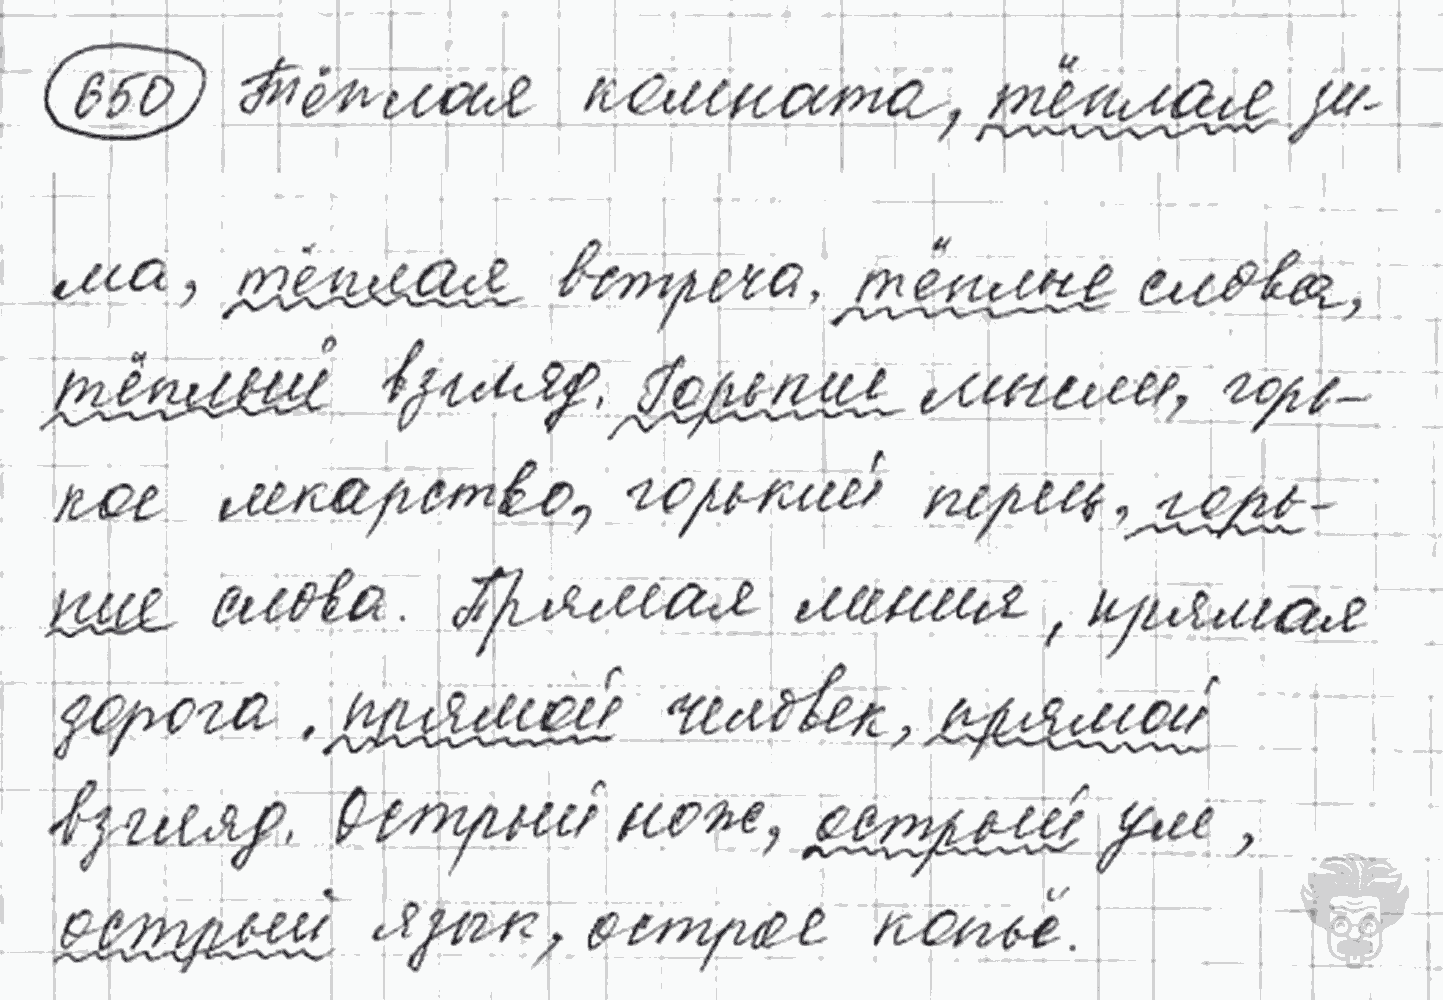 650 Тёплая комната, тёплая зи-
ма, тёплая встреча, тёплые слова,
тёплый взгляд. Горькие мысли, горь-
кое лекарство, горький перец, горь-
кие слова. Прямая линия, прямая
дорога, прямой человек, прямой
взгляд. Острый нож, острый ум,
острый язык, острое копьё.